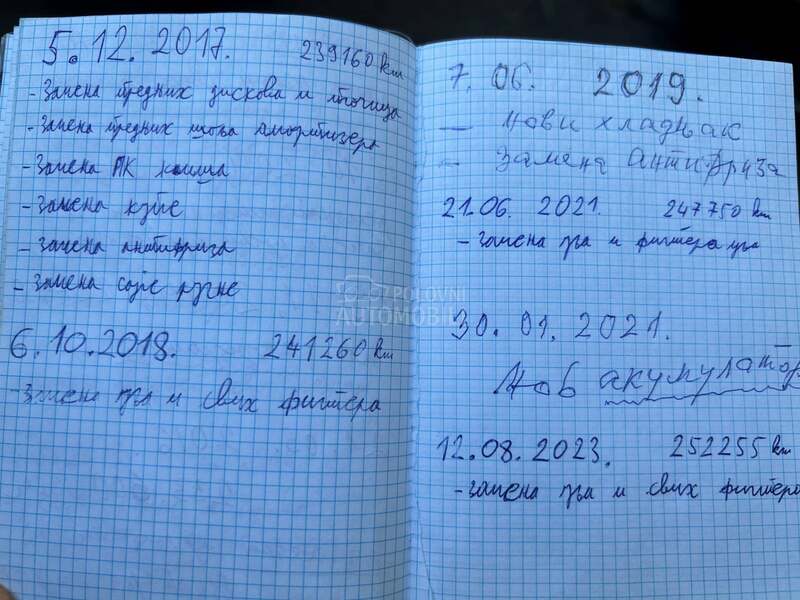 5.12.2017. 239160 km
- Замена предњих дискова и плочица
- Замена предњих шоља амортизера
- Замена ПК каиша
- Замена
- Замена антифриза
- Замена сајле ручне
6.10.2018. 241260 km
- Замена уља и свих филтера
7.06. 2019.
- Нови хладњак
- Замена Антифриза
21.06. 2021. 247750 km
- Замена уља и филтера уља
30.01.2021.
Нов акумулатор
12.08.2023. 252255 km
- Замена уља и свих филтера
POLOVNI
AUTOMOBILI